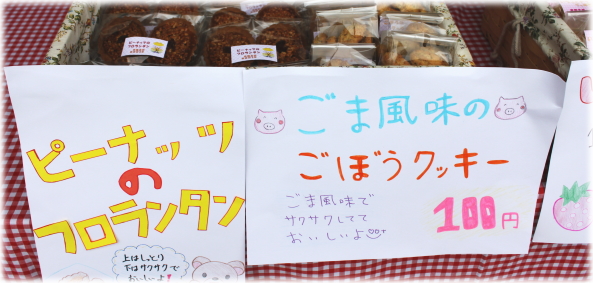 ピーナッツの
フロランタン
ピーナッツの
フロランタン
ピーナッツ
の
フロランタン
上はしっとり
下はサクサクで
おいしいよ
ごま風味の
ごぼうクッキー
ごま風味で
サクサクしてて
おいしいよ
100円